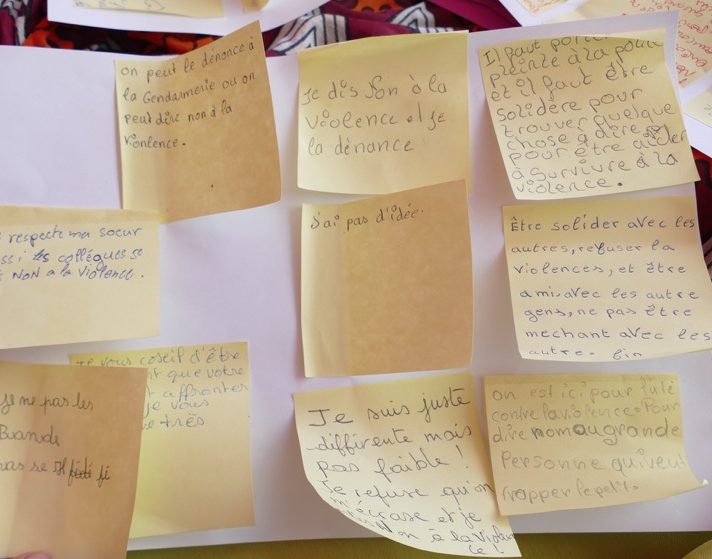 on peut le dénoncé à
la Gendarmerie ou on
peut dire non à la
vionlence.
Je dis Non à la
violence et je
la dénance
Il faut porter
preinte à la police
et il faut être
solidère pour
trouver quelque
chose à dire
pour être aider
à survivre à la
violence.
respecte ma soeur
les collégues se
NON a la violence.
J'ai pas d'idée.
Être solider avec les
autres, refuser la
violences, et être
ami, avec les autre
gens, ne pas être
mechant avec les
autre. fin
Je vous coseil d'être
que votre
affronter
je vous
très
je ne pas les
Biande
pas se
Je suis juste
différente mais
pas faible!
Je refuse qu'on
m'écrase et je
Non à la violen
ce!
on est ici pour luté
contre la violence. Pour
dire nom au grande
Personne qui veut
frapper le petit.